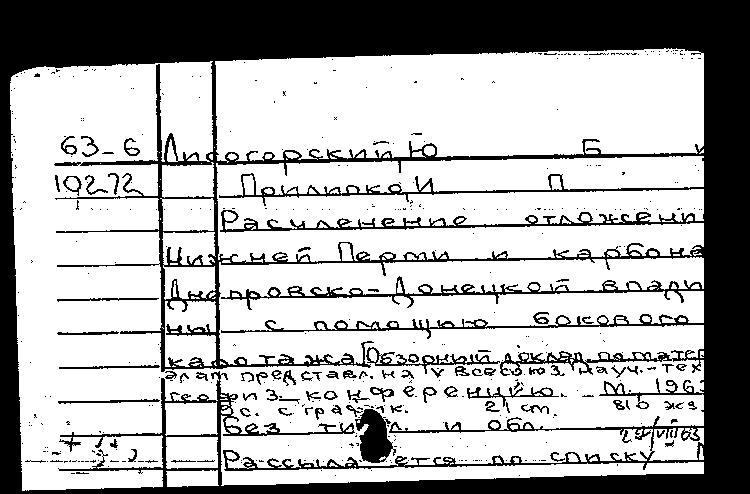 63-6 Лисогорский, Ю Б и
19272 Прилипко, И П
Расчленение отложени
Нижней Перми и карбона
Днепровско-Донецкой впади
ны с помощью бокового
каротажа [Обзорный доклад по матер
алам представл. на IV Всесоюз. науч.-тех
геофиз конференцию. М. 1963
с. с график. 21 cm. экз.
Без тит. л. и обл.
29/VIII 63
Рассылается по списку